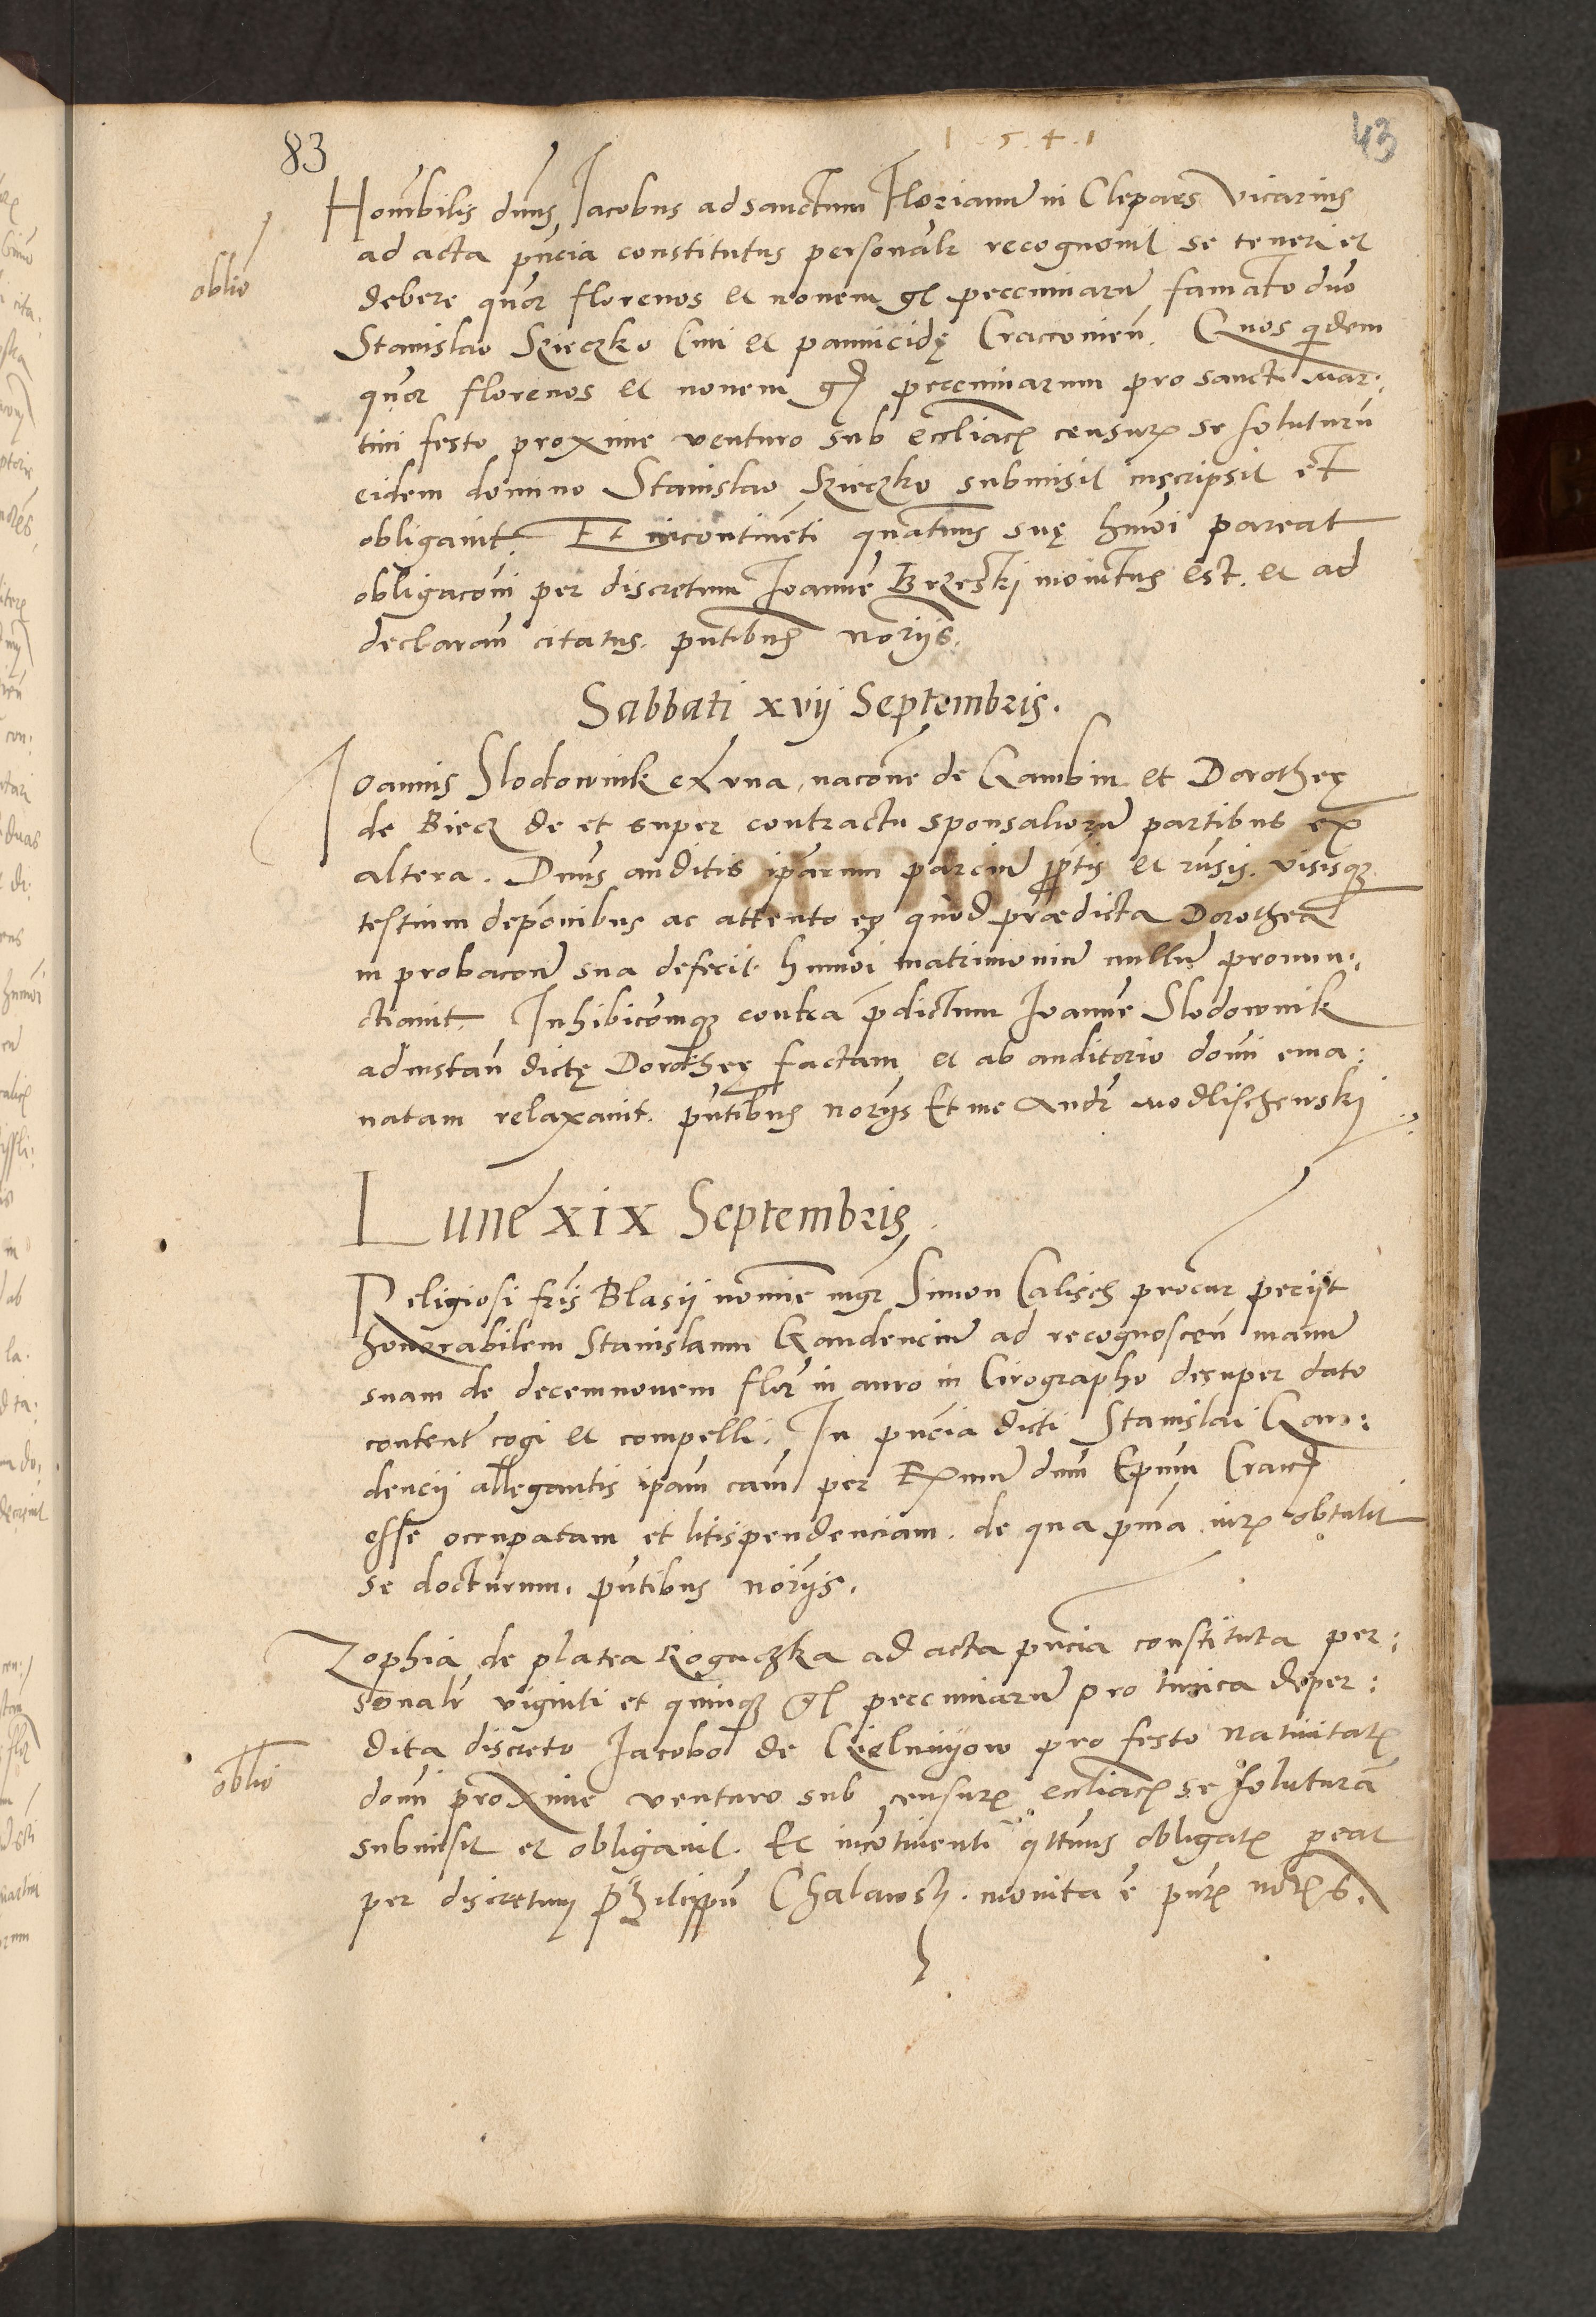 83
1 5 4 1
43
Honorabilis dnus Iacobus ad sanctum Florianu in Clepars Vicarius
ad acta pncia constitutus personalr recognouit se teneri et
oblio
debere quor florenos et nonem gr peccuniaru famato dno
Stanislao Szieczko Ciui et pannicidę Cracouien. Quos quidem
quor florenos et nonem gr peccuniarum pro sancti Mar:
tini festo proxime venturo sub eccliacis censuris se soluturu
eidem domino Stanislao Szieczko submisit inscripsit et
obligauit. Et incontineti quatenus suę hmoi pareat
obligaconi per discretum Ioanne Brzeski monitus est. et ad
declaran citatus. pntibus norijs.
Sabbati xvij Septembris.
Ioannis Slodownik ex vna, nacone de Gambin et Dorotheę
de Biecz de et super contractu sponsalioru partibus ex
altera. Dnus auditis iparum parciu pptis et rnsis. visisq
testium deponibus ac attento eo quod prædicta Dorothea
in probacone sua defecit. hmmoi matrimoniu nullu pronun:
ctiauit. Inhibicomq contra pdictum Ioanne Slodownik
ad instan dictę Dorotheę factam et ab auditorio domi ema:
natam relaxauit. pntibus norijs Et me Andr Modlischewskj
Lune xix Septembris.
Religiosi fris Blasij nomine mgr Simon Calisch procur pecijt
honorabilem Stanislaum Gaudenciu ad recognoscen manu
suam de decemnouem flor in auro in Cirographo desuper dato
content cogi et compelli. In pncia dicti Stanislai Gau:
dencij allegantis ipam cam per Rmum dnm Epum Crac
esse occupatam et litispendenciam. de qua pma iuris obtulit
se docturum. pntibus norijs.
Zophia de platea Rogaczka ad acta pncia constituta per:
sonalr viginti et quinq gr peccuniaru pro tunica deper:
dita discreto Iacobo de Gielniyow pro festo natiuitatis
oblio
domi proxime venturo sub censuris eccliacis se soluturã
submisit et obligauit. Et incotinenti qttnus obligatis peat
per discretum Philippu Chalawsk. monita e pntis noris.